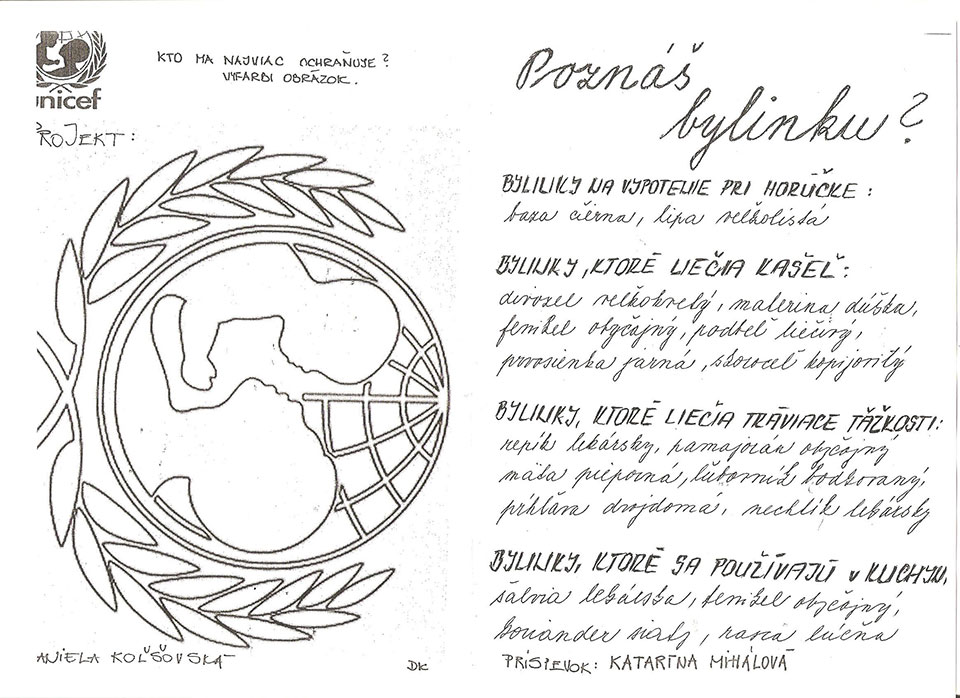 unicef
KTO MA NAJVIAC OCHRAŇUJE?
VYFARBI OBRÁZOK.
PROJEKT:
ANIELA KOĽŠOVSKÁ
DK
Poznáš
bylinku?
BYLINKY NA VYPOTENIE PRI HORÚČKE:
baza čierna, lipa veľkolistá
BYLINKY, KTORÉ LIEČIA KAŠEĽ:
divozel veľkokvetý, materina dúška,
fenikel obyčajný, podbeľ liečivý,
prvosienka jarná, skorocel kopijovitý
BYLINKY, KTORÉ LIEČIA TRÁVIACE ŤAŽKOSTI:
repík lekársky, pamajorán obyčajný
mäta pieporná, ľubovník bodkovaný,
pŕhľava dvojdomá, nechtík lekársky
BYLINKY, KTORÉ SA POUŽÍVAJÚ V KUCHYNI,
šalvia lekárska, fenikel obyčajný,
koriander siaty, rasca lúčna
PRÍSPEVOK: KATARÍNA MIHÁLOVÁ